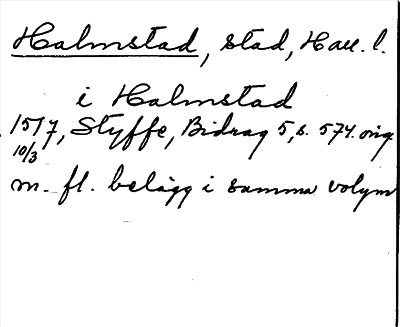 Halmstad, stad, Hall. l.
i Halmstad
1517, Styffe, Bidrag 5, s. 574. orig
10/3
m. fl. belägg i samma volym